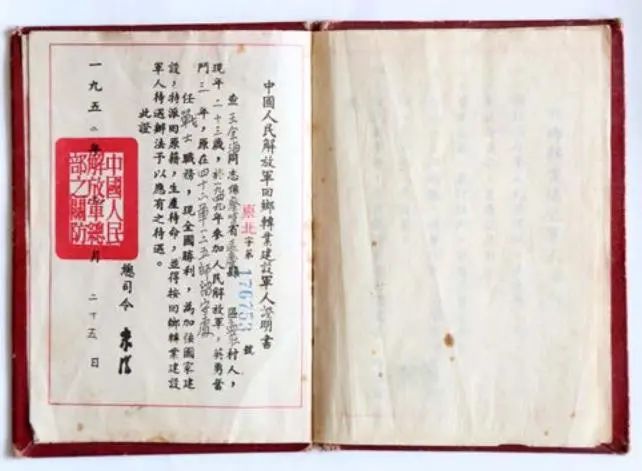 中國人民解放軍回鄉轉業建設軍人證明書
東北字第176753號
查王海同志係察省延慶縣 區 村人，
現年二十三歲，於一九四九年參加人民解放軍，英勇奮
鬥三年，原在四十六軍一三五師留守處
任戰士職務，現全國勝利，為加強國家建
設，特派回原籍，生產待命，並得按回鄉轉業建設
軍人待遇辦法予以應有之待遇。
此證
總司令 朱德
一九五二年 月二十五日
中國人民
解放軍總
部之關防